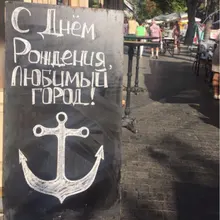 С Днём
Рождения,
любимый
город!